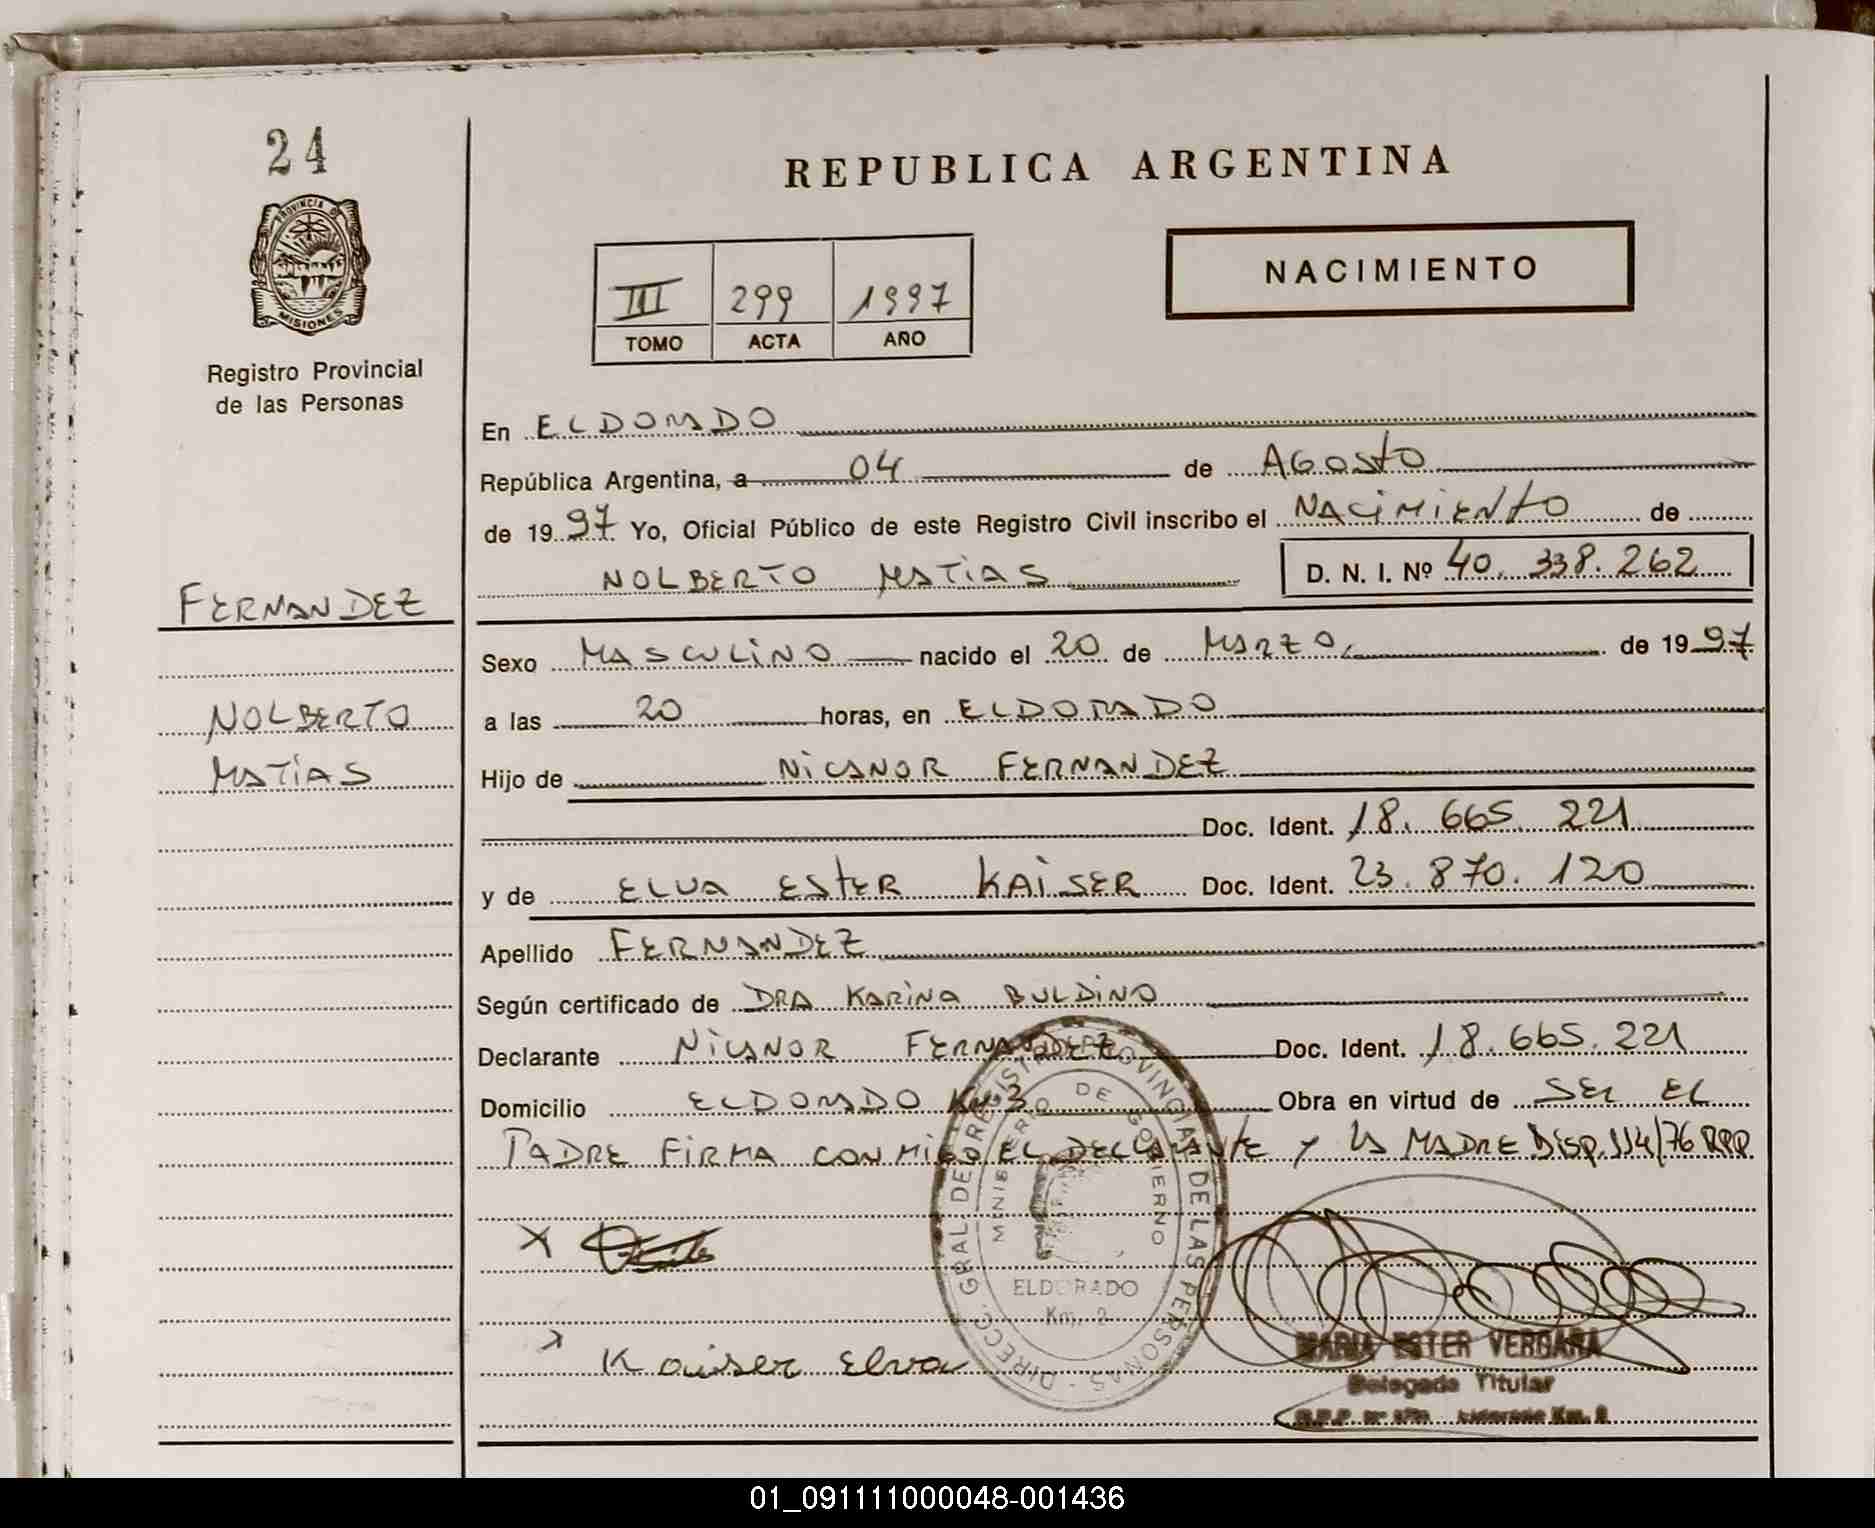 24
PROVINCIA DE
MISIONES
Registro Provincial
de las Personas
FERNANDEZ
NOLBERTO
MATIAS
REPUBLICA ARGENTINA
NACIMIENTO
III 299 1997
TOMO ACTA AÑO
En ELDORADO
República Argentina, a 04 de AGOSTO
de 1997 Yo, Oficial Público de este Registro Civil inscribo el NACIMIENTO de
NOLBERTO MATIAS D. N. I. Nº 40.338.262
Sexo MASCULINO nacido el 20 de MARZO. de 1997
a las 20 horas, en ELDORADO
Hijo de NICANOR FERNANDEZ
Doc. Ident. 18.665.221
y de ELVA ESTER KAISER Doc. Ident. 23.870.120
Apellido FERNANDEZ
Según certificado de DRA KARINA BULDINO
Declarante NICANOR FERNANDEZ Doc. Ident. 18.665.221
Domicilio ELDORADO Km.3 Obra en virtud de SER EL
PADRE FIRMA CONMIGO EL DECLARANTE y LA MADRE DISP.114/76 RPP.
X
Kaiser Elva
DIRECC. GRAL DE REGISTRO PROVINCIAL DE LAS PERSONAS
MINISTERIO DE GOBIERNO
ELDORADO
Km. 2
MARIA ESTER VERGARA
Delegada Titular
Eldorado Km.
01_091111000048-001436